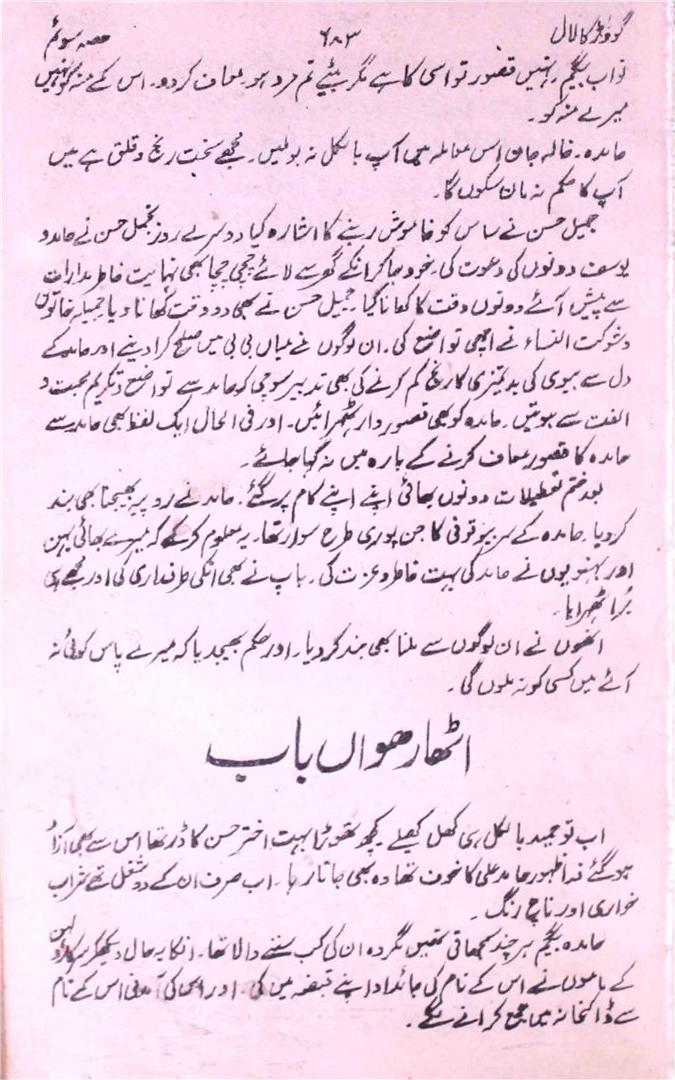 گودڑ کا لال ۶۸۳ حصہ سوئم
نواب بیگم۔ نہیں قصور تو اسی کا ہے مگر بیٹے تم مرد ہو معاف کر دو۔ اس کے منہ کو نہیں
میرے منہ کو۔
حامد۔ خالہ جان اس معاملہ میں آپ بالکل نہ بولیں۔ مجھے سخت رنج و قلق ہے میں
آپ کا حکم نہ مان سکوں گا۔
جمیل حسن نے ساس کو خاموش رہنے کا اشارہ کیا دوسرے روز تجمل حسن نے حامد و
یوسف دونوں کی دعوت کی۔ خود جا کر انکے گھر سے لائے چچی چچا بھی نہایت خاطر مدارات
سے پیش آئے دونوں وقت کا کھانا گیا۔ جمیل حسن نے بھی دو وقت کھانا دیا جمیلہ خاتون
و شوکت النساء نے اچھی تواضع کی۔ ان لوگوں نے میاں بی بی میں صلح کرا دینے اور حامد کے
دل سے بیوی کی بدتمیزی کا رنج کم کرنے کی بھی تدبیر سوچی کہ حامد سے تواضع و تکریم محبت و
الفت سے ہوتیں۔ حامدہ کو بھی قصوردار ٹھہرائیں۔ اور فی الحال ایک لفظ بھی حامد سے
حامدہ کا قصور معاف کرنے کے بارہ میں نہ کہا جائے۔
بعد ختم تعطیلات دونوں بھائی اپنے اپنے کام پر گئے۔ حامد نے روپیہ بھیجنا بھی بند
کر دیا۔ حامدہ کے سر بیوقوفی کا جن پوری طرح سوار تھا۔ یہ معلوم کر کے کہ میرے بھائی بہن
اور بہنوئیوں نے حامد کی بہت خاطر و عزت کی۔ باپ نے بھی انکی طرفداری کی اور مجھے ہی
بُرا ٹھہرایا۔
انھوں نے ان لوگوں سے ملنا بھی بند کر دیا۔ اور حکم بھیجدیا کہ میرے پاس کوئی نہ
آئے میں کسی کو نہ ملوں گی۔
اٹھارھواں باب
اب تو حمید بالکل ہی کھل کھیلے کچھ تھوڑا بہت اختر حسن کا ڈر تھا اس سے بھی آزاد
ہو گئے ظہور حامد علی کا خوف تھا وہ بھی جاتا رہا۔ اب صرف ان کے دو شغل تھے شراب
خواری اور ناچ رنگ۔
حامدہ بیگم ہر چند سمجھاتی تھیں مگر وہ ان کی کب سننے والا تھا۔ انکا یہ حال دیکھکر
کے ماموں نے اس کے نام کی جائداد اپنے قبضہ میں کی۔ اور اس کی آمدنی اس کے نام
سے ڈاکخانہ میں جمع کرانے لگے۔